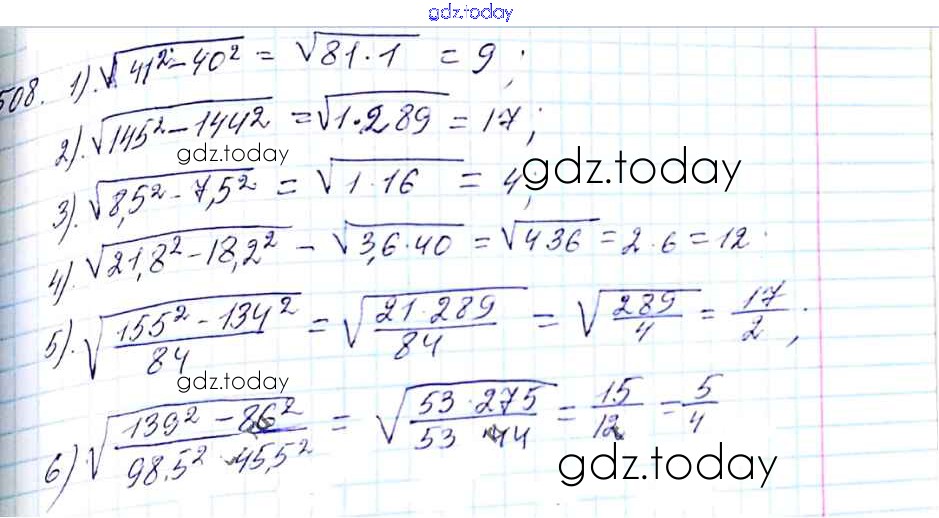 gdz.today
508. 1). √(41² - 40²) = √(81 · 1) = 9;
2). √(145² - 144²) = √(1 · 289) = 17;
gdz.today
3). √(8,5² - 7,5²) = √(1 · 16) = 4;
gdz.today
4). √(21,8² - 18,2²) - √(3,6 · 40) = √(4 36) = 2 · 6 = 12.
5). √((155² - 134²)/84) = √((21 · 289)/84) = √(289/4) = 17/2;
gdz.today
6) √((139² - 86²)/(98,5² - 45,5²)) = √((53 · 275)/(53 · 144)) = 15/12 = 5/4
gdz.today